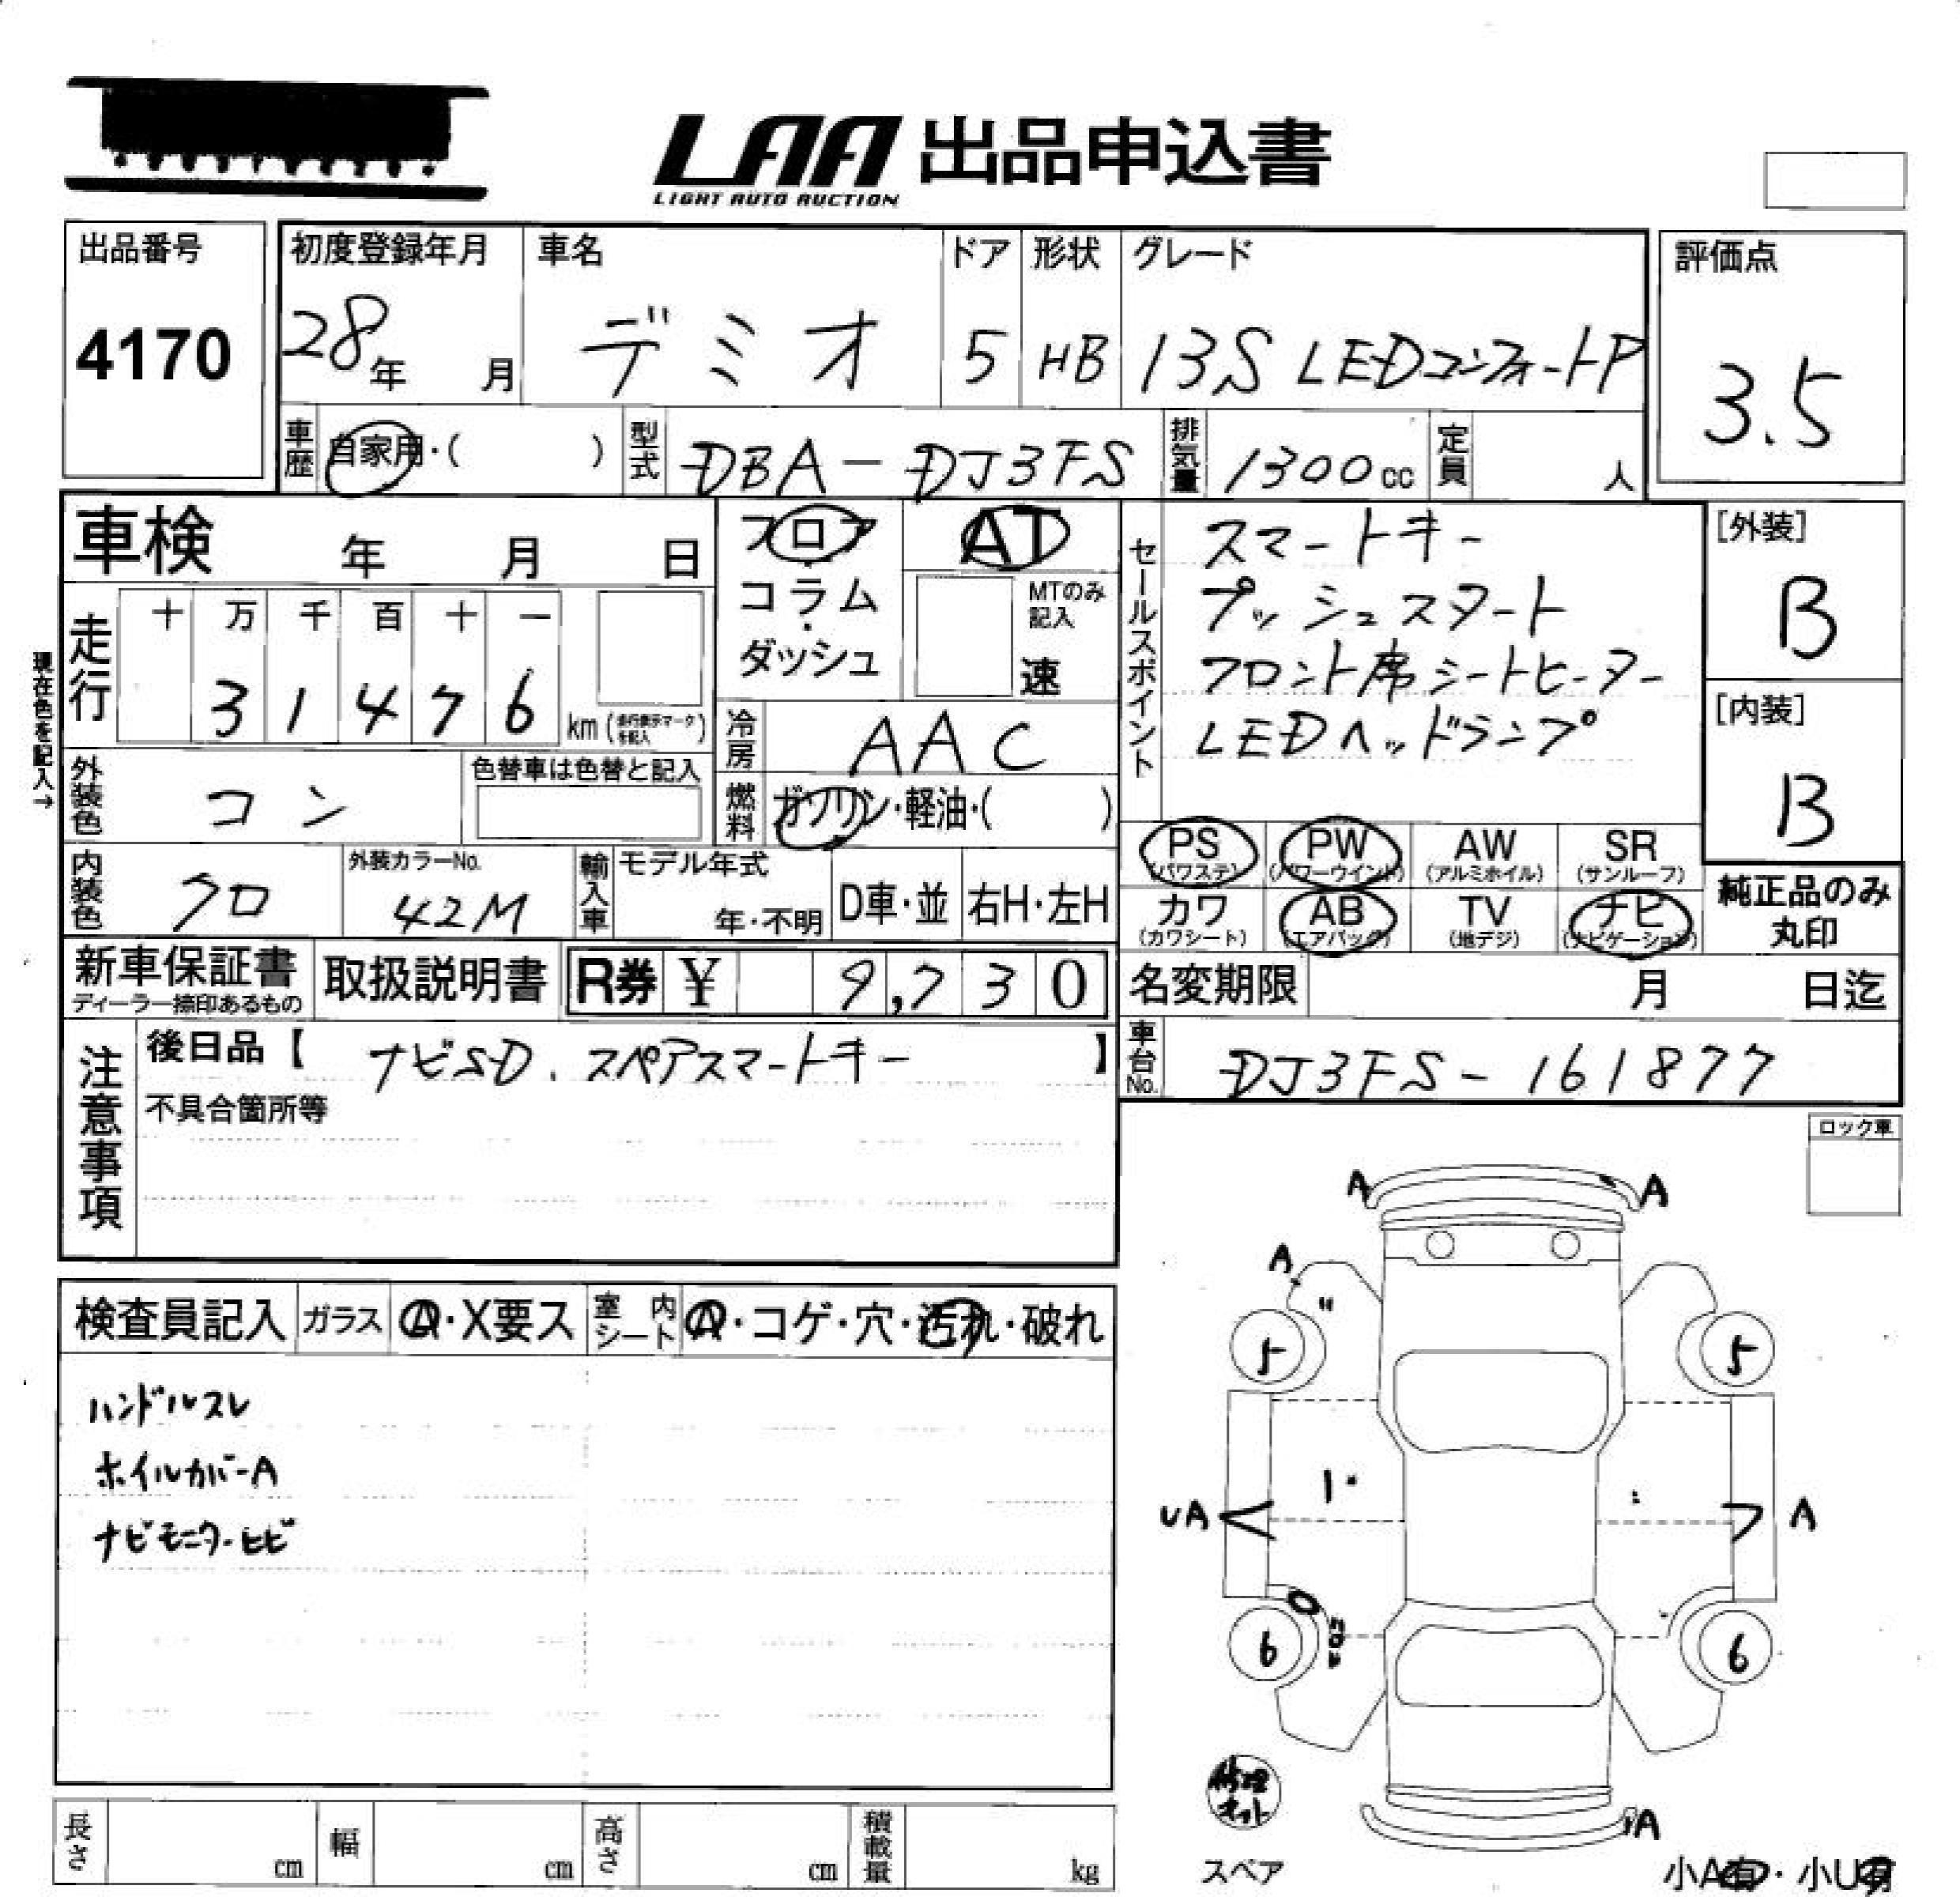 LAA 出品申込書
LIGHT AUTO AUCTION
出品番号
4170
初度登録年月
28年 月
車名
デミオ
ドア
5
形状
HB
グレード
13S LEDコンフォートP
評価点
3.5
車歴 自家用・( )
型式 DBA-DJ3FS
排気量 1300cc
定員 人
車検 年 月 日
フロア
コラム
・
ダッシュ
AT
MTのみ
記入
速
セールスポイント
スマートキー
プッシュスタート
フロント席シートヒーター
LEDヘッドランプ
[外装]
B
[内装]
B
現在色を記入→
走行
十 万 千 百 十 一
3 1 4 7 6 km (走行表示マークを記入)
冷房 AAC
外装色 コン
色替車は色替と記入
燃料 ガソリン・軽油・( )
内装色 クロ
外装カラーNo.
42M
輸入車 モデル年式
年・不明
D車・並
右H・左H
PS
(パワステ)
PW
(パワーウインド)
AW
(アルミホイル)
SR
(サンルーフ)
カワ
(カワシート)
AB
(エアバッグ)
TV
(地デジ)
ナビ
(ナビゲーション)
純正品のみ
丸印
新車保証書
ディーラー捺印あるもの
取扱説明書
R券 ¥ 9,730
名変期限 月 日迄
注意事項
後日品【 ナビSD、スペアスマートキー 】
不具合箇所等
車台No. DJ3FS-161877
ロック車
検査員記入
ガラス A・X要ス
室内シート A・コゲ・穴・汚れ・破れ
ハンドルスレ
ホイルカバーA
ナビモニターヒビ
A A
A
〃
5 5
1・
UA A
6 6
A
スペア
小A有・小U有
長さ cm
幅 cm
高さ cm
積載量 kg